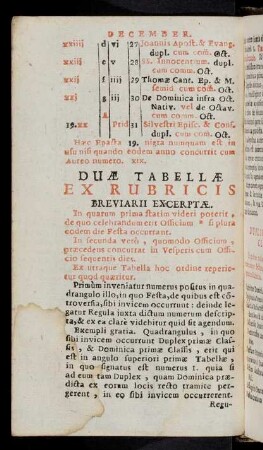 DECEMBER.
xxiiij d vi 27 Joannis Apost. & Evang.
dupl. cum com. Oct.
xxiij e v 28 SS. Innocentum. dupl.
cum comm. Oct.
xxij f iiij 29 Thomæ Cant. Ep. & M.
semid cum com. Oct.
xxj g iij 30 De Dominica infra Oct.
Nativ. vel de Octav.
cum comm. Oct.
19.xx A Prid 31 Silvestri Episc. & Conf.
dupl. cum com. Oct.
Hæc Epacta 19. nigra nunquam est in
usu nisi quando eodem anno concurrit cum
Aureo numero. XIX.
DUÆ TABELLÆ
EX RUBRICIS
BREVIARII EXCERPTÆ.
In quarum prima statim videri poterit,
de quo celebrandum erit Officium si plura
eodem die Festa occurrant.
In secunda verò, quomodo Officium,
præcedens concurrat in Vesperis cum Offi-
cio sequentis diei.
Ex utraque Tabella hoc ordine reperie-
tur quod quæritur.
Primùm inveniatur numerus positus in qua-
drangulo illo, in quo Festa, de quibus est con-
troversia, sibi invicem occurrunt: deinde le-
gatur Regula juxta dictum numerum descrip-
ta, & ex ea clarè videbitur quid sit agendum.
Exempli gratia. Quadrangulus, in quo
sibi invicem occurrunt Duplex primæ Clas-
sis, & Dominica primæ Classis, erit qui
est in angulo superiori primæ Tabellæ,
in quo signatus est numerus 1. quia si
ad eum tam Duplex, quam Dominica præ-
dicta ex eorum locis recto tramite per-
gerent, in eo sibi invicem occurrerent.
Regu-